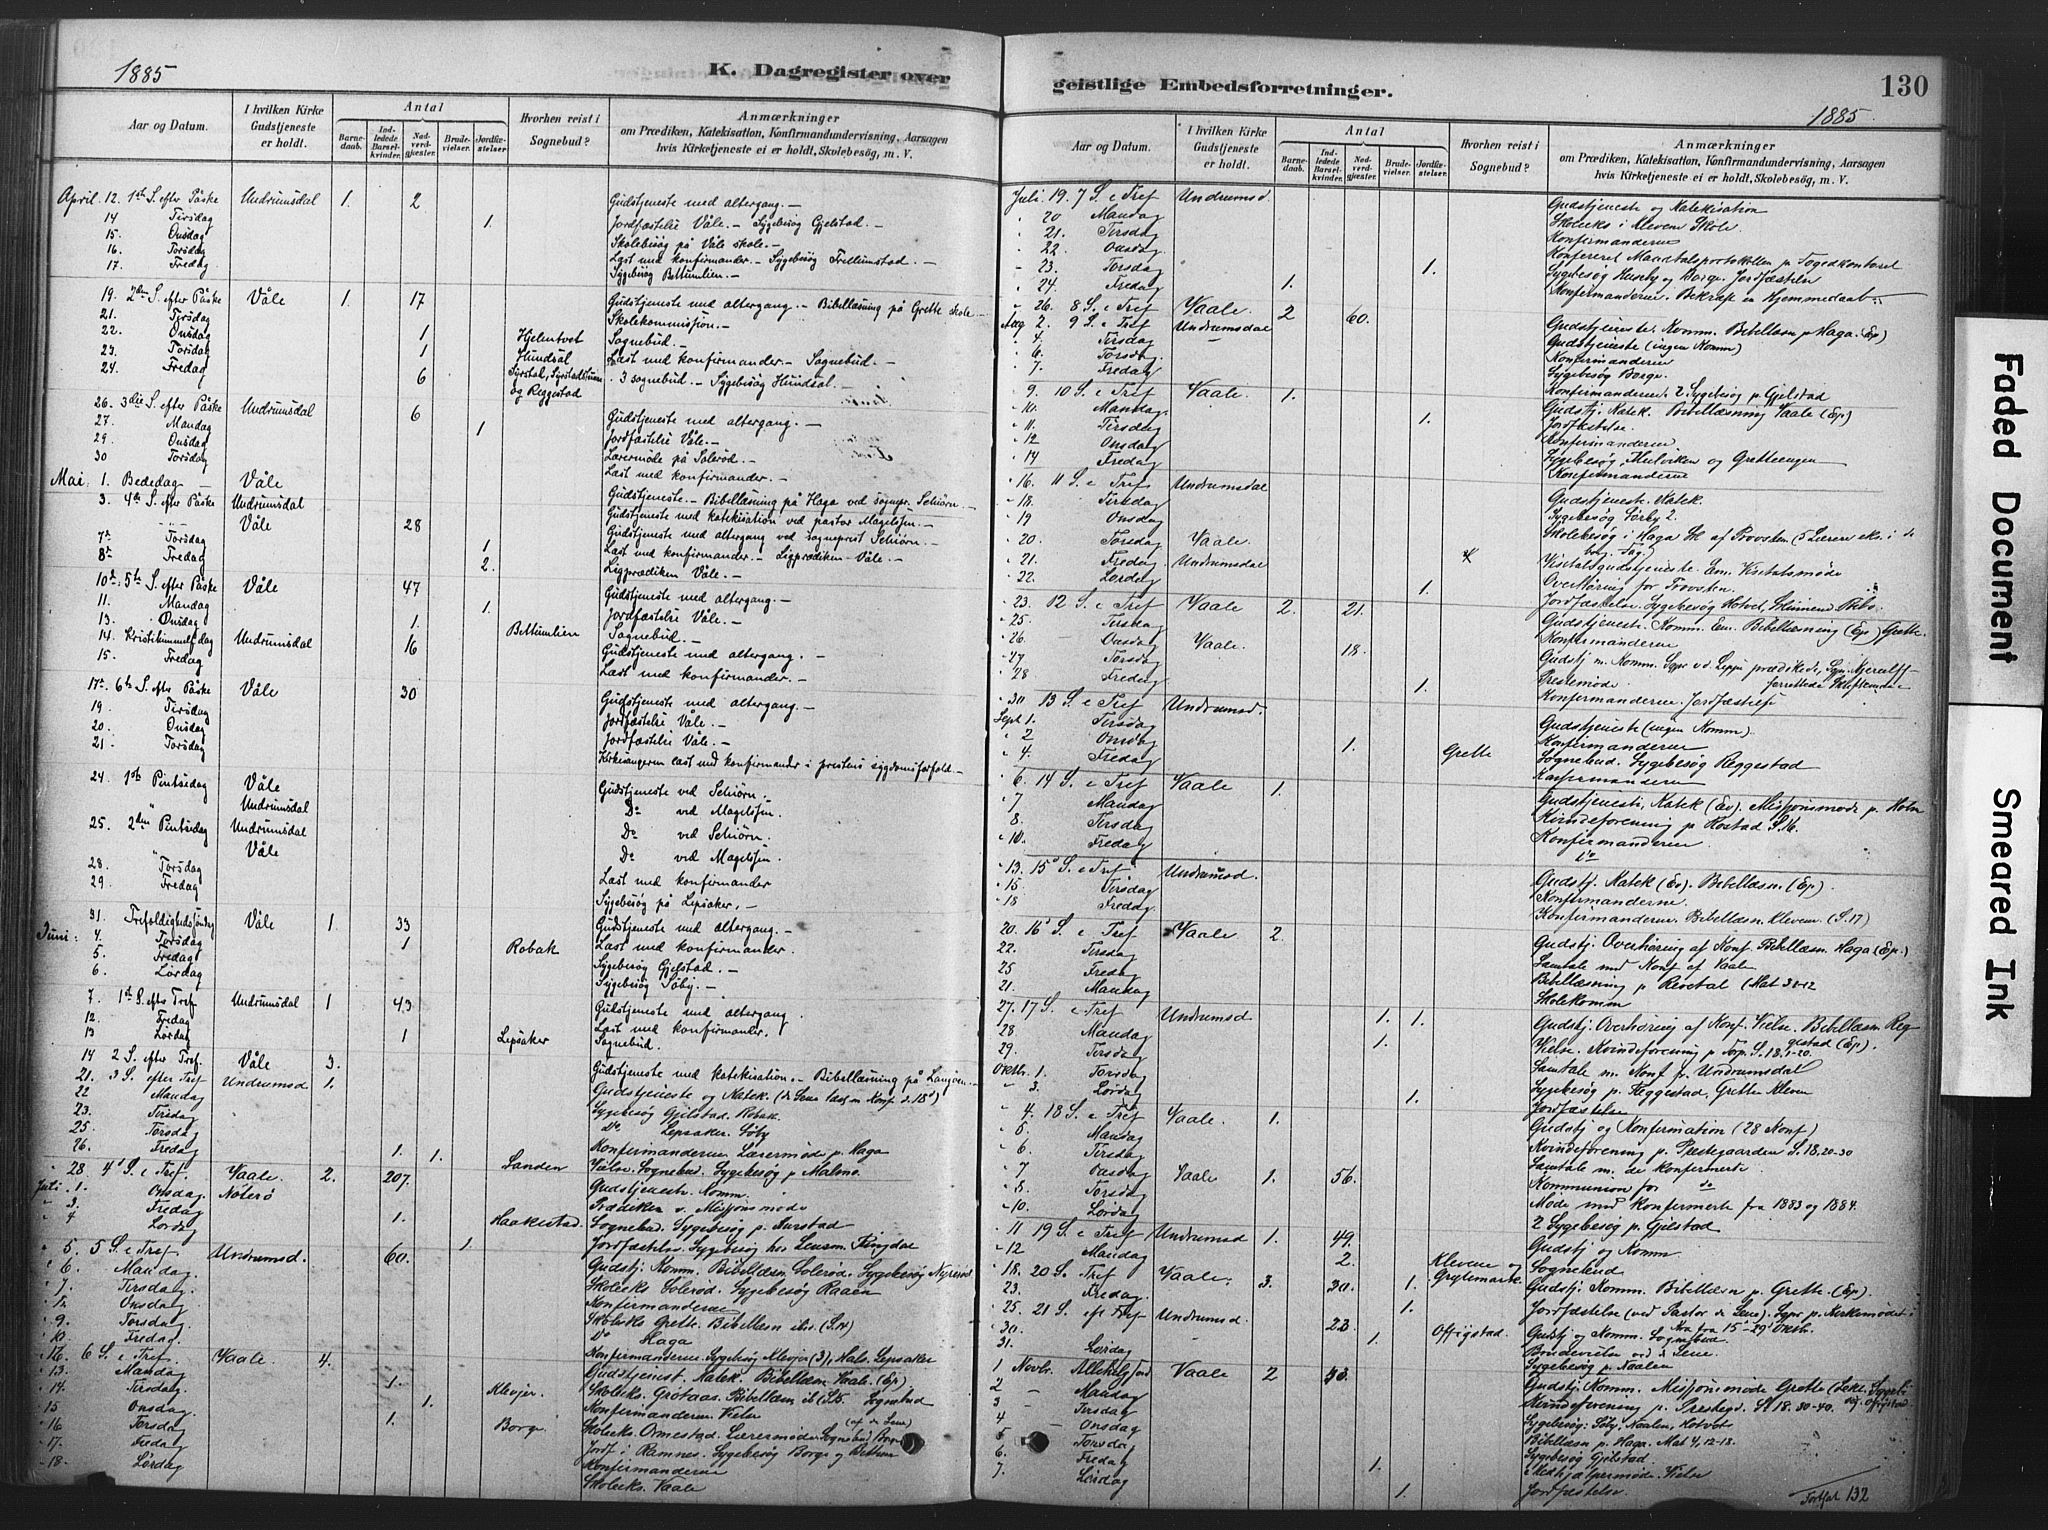 1885
K. Dagregister over
Aar og Datum.
I hvilken Kirke Gudstjeneste er holdt.
Antal
Barne-daab.
Ind-ledede Barsel-kvinder.
Nad-verd-gjester.
Brude-vielser.
Jordfæ-stelser
Hvorhen reist i Sognebud?
Anmærkninger
om Prædiken, Katekisation, Konfirmandundervisning, Aarsagen
hvis Kirketjeneste ei er holdt, Skolebesøg, m. V.
April. 12. 1ste S. efter Påske Undrumsdal 1. 2 Gudstjeneste med altergang.—
14 Tirsdag 1. Jordfæstelse Våle.— Sygebesøg Gjelstad.
15. Onsdag Skolebesøg på Våle skole.—
16. Torsdag Læst med konfirmander.— Sygebesøg
17. Fredag Sygebesøg Bettumlien.—
19. 2den S. efter Påske Våle 1. 17 Gudstjeneste med altergang.— Bibellæsning på Grette skole.—
21. Tirsdag Skolekommission.—
22. Onsdag 1 Hjelentvet Sognebud.—
23. Torsdag 1 Hundsal Læst med konfirmander.— Sognebud.—
24. Fredag 6 og Reggestad 3 sognebud.— Sygebesøg Hundsal.—
26. 3die S. efter Påske Undrumsdal 6 Gudstjeneste med altergang.—
27. Mandag 1 Jordfæstelse Våle.—
29. Onsdag Lærermøde på Solerød.—
30 Torsdag Læst med konfirmander.—
Mai: 1. Bededag — Våle Gudstjeneste.— Bibellæsning på Haga ved sognepr. Schiørn.—
3. 4de S. efter Påske Undrumsdal Gudstjeneste med katekisation ved pastor Magelssen.—
Våle 28 Gudstjeneste med altergang ved sogneprest Schiørn.—
7de Torsdag 1 Læst med konfirmander.— Ligprædiken Våle.—
8de Fredag 2. Ligprædiken Våle.—
10de 5te S. efter Påske Våle 47 Gudstjeneste med altergang.—
11. Mandag 1. Jordfæstelse Våle.—
13. Onsdag 1. Bettumlien Sognebud.—
14. Kristihimmelf.dag Undrumsdal 16 Gudstjeneste med altergang.—
15. Fredag Læst med konfirmander.—
17de 6te S. efter Påske Våle 30 Gudstjeneste med altergang.—
19. Tirsdag Jordfæstelse Våle.—
20. Onsdag Jordfæstelse Våle.—
21. Torsdag Kirkesangeren læst med konfirmander i prestens sygdomsforfald.—
24. 1ste Pintsedag Våle Gudstjeneste ved Schiørn.
Undrumsdal Do ved Magelssen.
25. 2den Pintsedag Undrumsdal Do ved Schiørn.
Våle Do ved Magelssen.
28. Torsdag Læst med konfirmander
29. Fredag Sygebesøg på Lepsaker.—
31. Trefoldighedssøndag Våle 1 33 Gudstjeneste med altergang.—
Juni: 4. Torsdag 1 Robak Læst med konfirmander.
5. Fredag Sygebesøg Gjelstad.—
6. Lørdag Sygebesøg Søby.—
7. 1ste S. efter Tref Undrumsdal 1 43 Gudstjeneste med altergang.
12. Fredag Læst med konfirmander.
13 Lørdag 1 Lepsaker Sognebud.
14 2 S. efter Tref. Våle 3. Gudstjeneste med katekisation.— Bibellæsning på
21. 3 S. efter Tref Undrumsd 1. Gudstjeneste og Katek.
22 Mandag Sygebesøg Gjelstad. Robak
23. Tirsdag Do. Lepsaker. Søby
25. Torsdag Konfirmanderne. Lærermøde p. Haga
26. Fredag 1. 1. Sanden Vielse. Sognebud. Sygebesøg p. Malmø.
28. 4de S. e Tref. Vaale. 2. 207. Gudstjeneste. Komm.
Juli 1. Onsdag. Nøterø Prædiken v. Missionsmøde
3. Fredag 1. Haakestad Sognebud. Sygebesøg p. Aurstad
4 Lørdag 1.
5. 5 S. e Tref. Undrumsd. 60. Gudstj. Komm. Bibellæsn. Solerød.
6. Mandag. Skoleeks Solerød. Sygebesøg Raaen
7. Tirsdag Konfirmanderne
Onsdag
9. Torsdag Do Haga
10. Fredag.
6 S. e Tref. Vaale. 4. Gudstjenest. Katek. Bibellæsn. Vaale. (Ep)
13. Mandag 1.
14. Tirsdag. Klevjer.
15 Onsdag. 1. Konfirmanderne. Vielse
16 Torsdag 1. Borge Skoleeks. Ormestad. Lærermøde Sognebud Borge
17. Fredag Jordf. i Ramnes. Sygebesøg Borge og Bettum
18. Lørdag Konfirmanderne
Skoleeks. Vaale
geistlige Embedsforretninger.
130
1885
Aar og Datum.
I hvilken Kirke Gudstjeneste er holdt.
Antal
Barne-daab.
Ind-ledede Barsel-kvinder.
Nad-verd-gjester.
Brude-vielser.
Jordfæ-stelser.
Hvorhen reist i Sognebud?
Anmærkninger
om Prædiken, Katekisation, Konfirmandundervisning, Aarsagen
hvis Kirketjeneste ei er holdt, Skolebesøg, m. V.
Juli. 19. 7 S. e Tref Undrumsd. Gudstjeneste og Katekisation
20 Mandag Skoleeks i Kleven Skole.
21. Tirsdag Konfirmanderne
22. Onsdag Konfereret Mandtalsprotokollen p. Fogedkontoret
23. Torsdag 1. Sygebesøg Huseby og Borge. Jordfæstelse
24. Fredag 1. Konfirmanderne. Bekræft. en Hjemmedaab.
26. 8 S. e Tref Vaale. 2 60. Gudstjeneste. Komm. Bibellæsn p. Haga. (Ep)
Aug 2. 9 S. e Tref Undrumsdal Gudstjeneste (ingen Komm)
4. Tirsdag Konfirmanderne
6. Torsdag. Sygebesøg Borge.
7. Fredag Konfirmanderne. 2 Sygebesøg p. Gjelstad
9. 10 S. e Tref Vaale. 1. Gudstj. Katek. Bibellæsning Vaale (Ep)
10. Mandag. 1. Jordfæstelse.
11. Tirsdag Konfirmanderne
12 Onsdag Sygebesøg, Hulviken og Gretteengen
14 Fredag Konfirmanderne
16. 11 S. e Tref Undrumsdal Gudstjeneste. Katek.
18. Tirsdag Sygebesøg Sørby 2.
19 Onsdag Skolebesøg i Haga
20. Torsdag Vaale.
21. Fredag Undrumsdal Visitatsgudstjeneste. Em. Visitatsmøde
22. Lørdag 1. Overhøring for Provsten.
23. 12 S. e Tref Vaale 2. 21. Gudstjeneste. Komm. Em. Bibellæsning (Ep) Grette.
25. Tirsdag Konfirmanderne
26. Onsdag Vaale. 18.
27 Torsdag Prestemøde
28 Fredag 1. Konfirmanderne. Jordfæstelse
30 13 S. e Tref Undrumsd. Gudstjeneste (ingen Komm).
Sept 1. Tirsdag Konfirmanderne
2 Onsdag 1. Grette Sognebud. Sygebesøg Reggestad
4. Fredag Konfirmanderne
6. 14 S. e Tref Vaale 1. Gudstjeneste, Katek (Ev). Missionsmøde p. Holm
7. Mandag Kvindeforening p. Rostad. S. 16.
8. Tirsdag Konfirmanderne.
10. Fredag do
13. 15de S. e Tref Undrumsd. Gudstj. Katek (Ev). Bibellæsn. (Ep).
15. Tirsdag Konfirmanderne.
18 Fredag Konfirmanderne. Bibellæsn. Kleven. (S. 17)
20. 16de S. e Tref Vaale 2. Gudstj. Overhøring af Konf. Bibellæsn. Haga (Ep.)
22. Tirsdag Samtale med Konf af Vaale
25 Fredag
21. Mandag Skolekomm
27. 17 S. e Tref Undrumsd 1. 1. Gudstj. Overhøring af Konf. Vielse. Bibellæsn. Reg
28. Mandag 1. gestad (Ep). Vielse. Kvindeforening p. Torp. S. 18. 1-20.
29. Tirsdag Samtale m. Konf p. Undrumsdal
Oktbr. 1. Torsdag Sygebesøg p. Reggestad, Grette Kleven
3. Lørdag 1. Jordfæstelse
4. 18 S. e Tref Vaale. 1. Gudstj og Konfirmation (28 Konf)
5. Mandag Kvindeforening p. Prestegaarden S. 18. 20-30
6 Tirsdag Samtale m. de konfirmerte.
7 Onsdag Vaale 1. 56. Kommunion for do
8. Torsdag Møde med konfirmerte fra 1883 og 1884.
10. Lørdag 2 Sygebesøg p. Gjelstad
11 19 S. e Tref Undrumsd 1. 49. Gudstj og Komm.
12 Mandag 2. Klevene og Grytemark. Sognebud
18. 20 S. Tref Vaale. 3. 30. 1. Gudstj. Komm. Bibellæsn p. Grette (Ep).
23. Fredag 1. Jordfæstelse (ved Pastor de Seue).
25. 21 S. eft Tref Undrumsd. 23. Gudstj og Komm. Sognebud
30. 1. Offigstad. Brudevielse ved de Seue.
31. Lørdag Sygebesøg p. Naalen
1 Novbr. Allehelg. Vaale 2 53. Gudstj. Komm. Missionsmøde Grette
2 Mandag Kvindeforening p. Presteg. S. 18. 30-40.
3 Tirsdag Sygebesøg: Søby, Naalen, Hotvet
4 Onsdag Bibellæsn p. Haga. Mat 4, 12-18.
5 Torsdag Sygebesøg Gjelstad
6. Fredag 1. Vielse
7. Lørdag 1. Jordfæstelse.
Fortsat 132
Faded Document
Smeared Ink